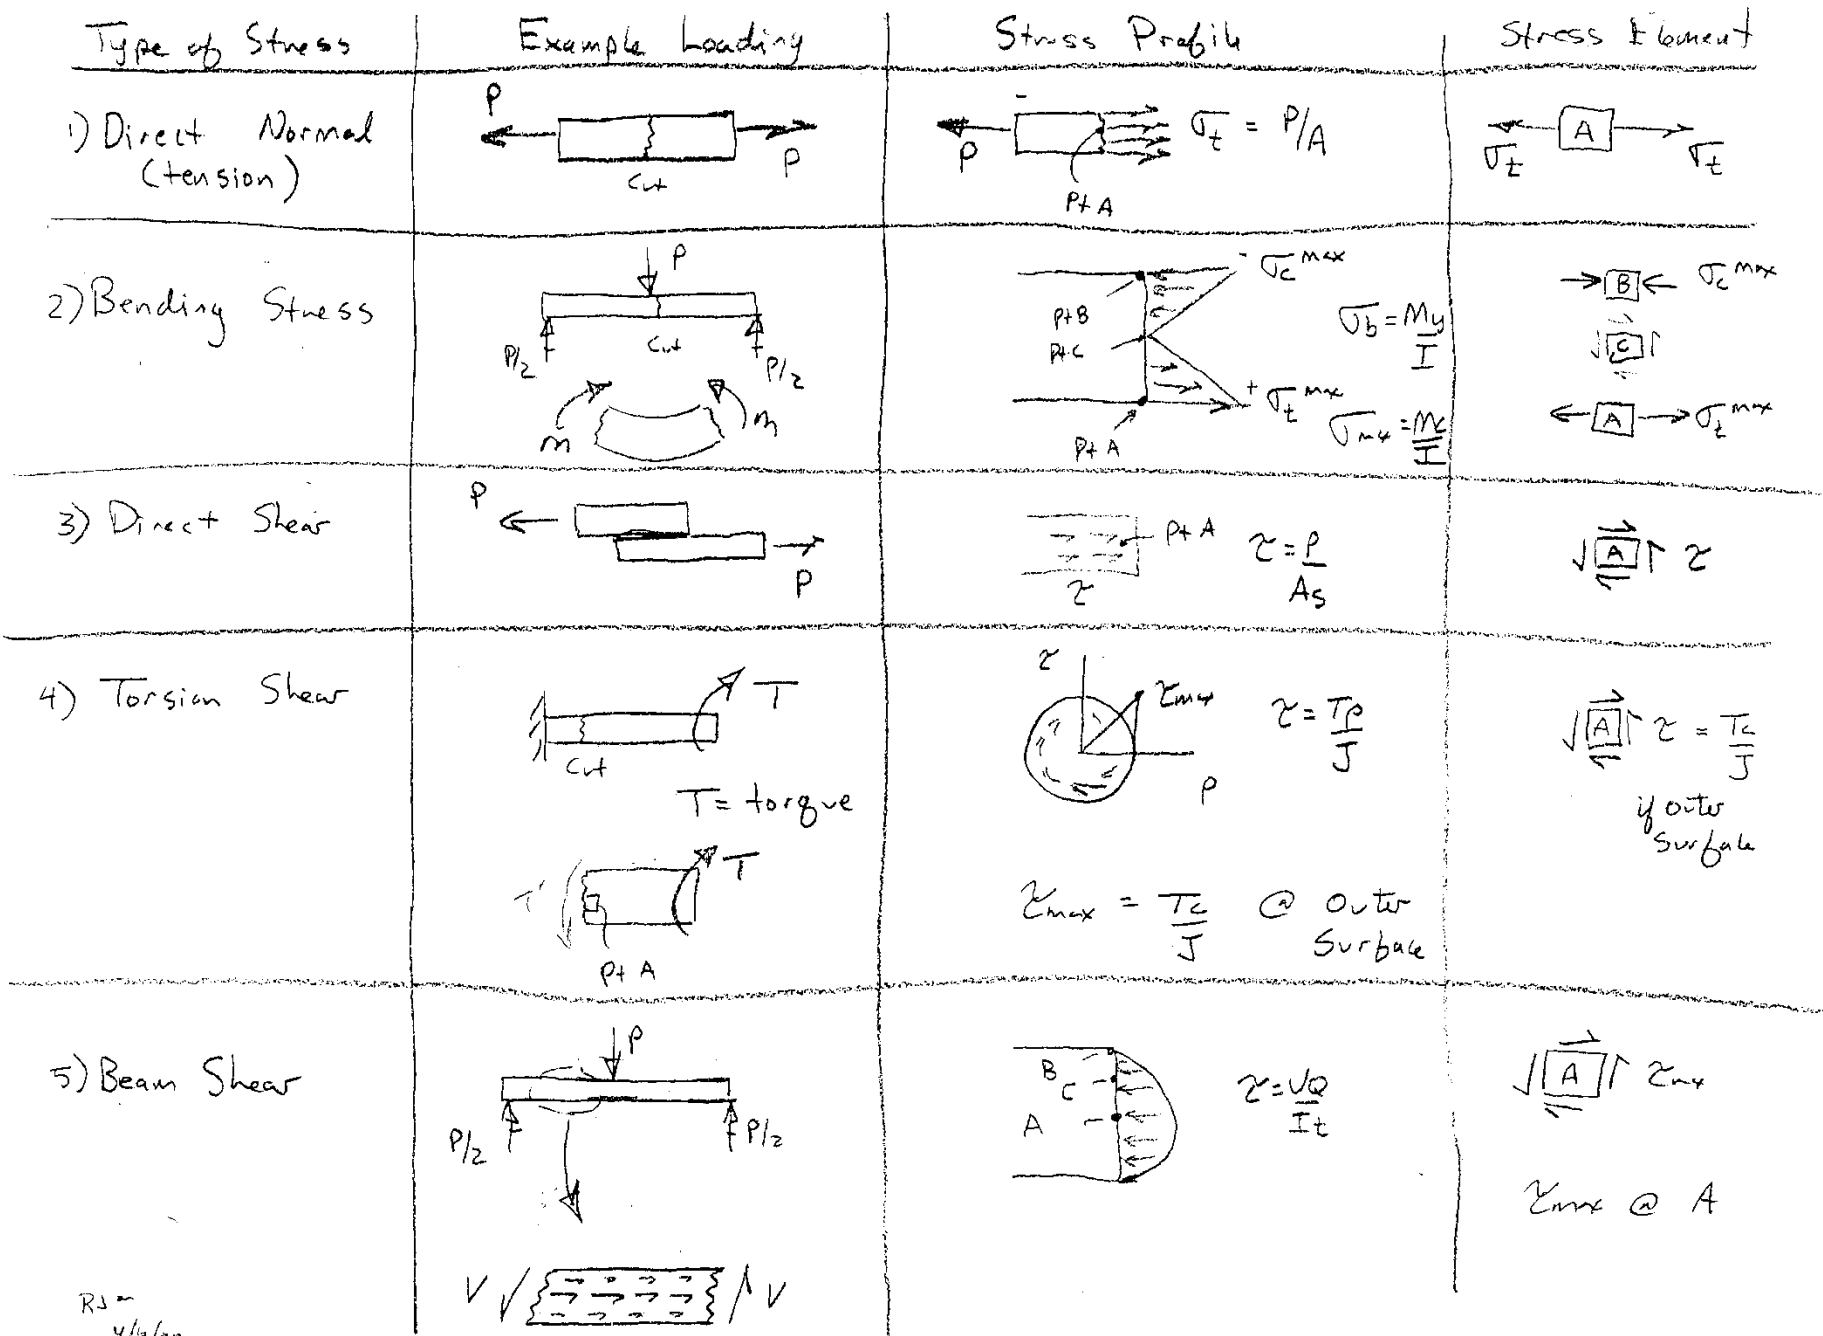 Type of Stress
Example Loading
Stress Profile
Stress Element
1) Direct Normal
(tension)
P
P
Cut
P
σt = P/A
pt A
A
σt
σt
2) Bending Stress
P
P/2
Cut
P/2
M
M
- σc max
pt B
pt C
σb = My/I
+ σt max
σmax = Mc/I
pt A
B
σc max
C
A
σt max
3) Direct Shear
P
P
pt A
τ = P/As
τ
A
τ
4) Torsion Shear
T
Cut
T = torque
T'
T
pt A
τ
τmax
τ = Tρ/J
ρ
τmax = Tc/J @ outer
surface
A
τ = Tc/J
if outer
surface
5) Beam Shear
P
P/2
P/2
V
V
B
C
A
τ = VQ/It
A
τmax
τmax @ A